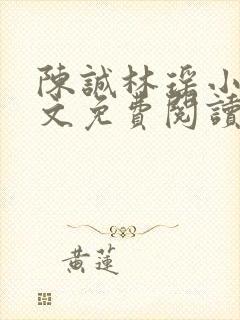 陳誠林瑤小
文免費閱讀
黃蓮